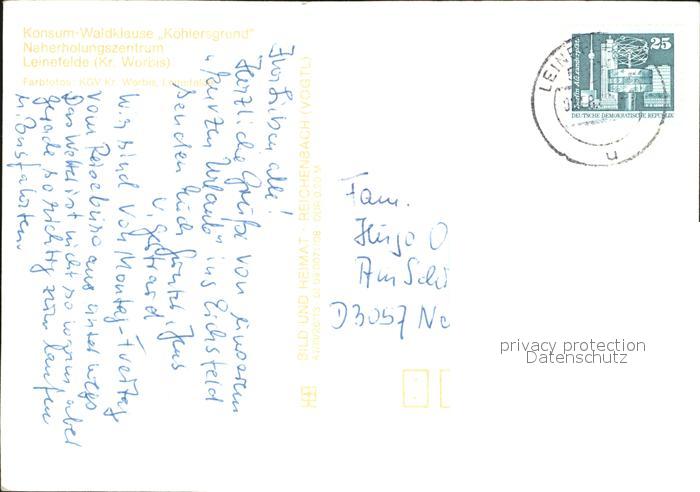 Konsum-Waldklause „Köhlersgrund"
Naherholungszentrum
Leinefelde (Kr. Worbis)
Farbfotos: KGV Kr. Worbis, Leinefelde
Ihr Lieben alle!
Herzliche Grüße von unserem
kurzen Urlaub ins Eichsfeld
senden Euch Jens
u. Gertraud
Wir sind von Montag-Freitag
vom Reisebüro aus unterwegs
Das Wetter ist nicht so warm aber
gerade so richtig zum laufen
u. Busfahrten.
BILD UND HEIMAT · REICHENBACH (VOGTL)
25
DEUTSCHE DEMOKRATISCHE REPUBLIK
LEINE
u
Fam.
Hugo O
Am Sch
D3057 Ne
privacy protection
Datenschutz